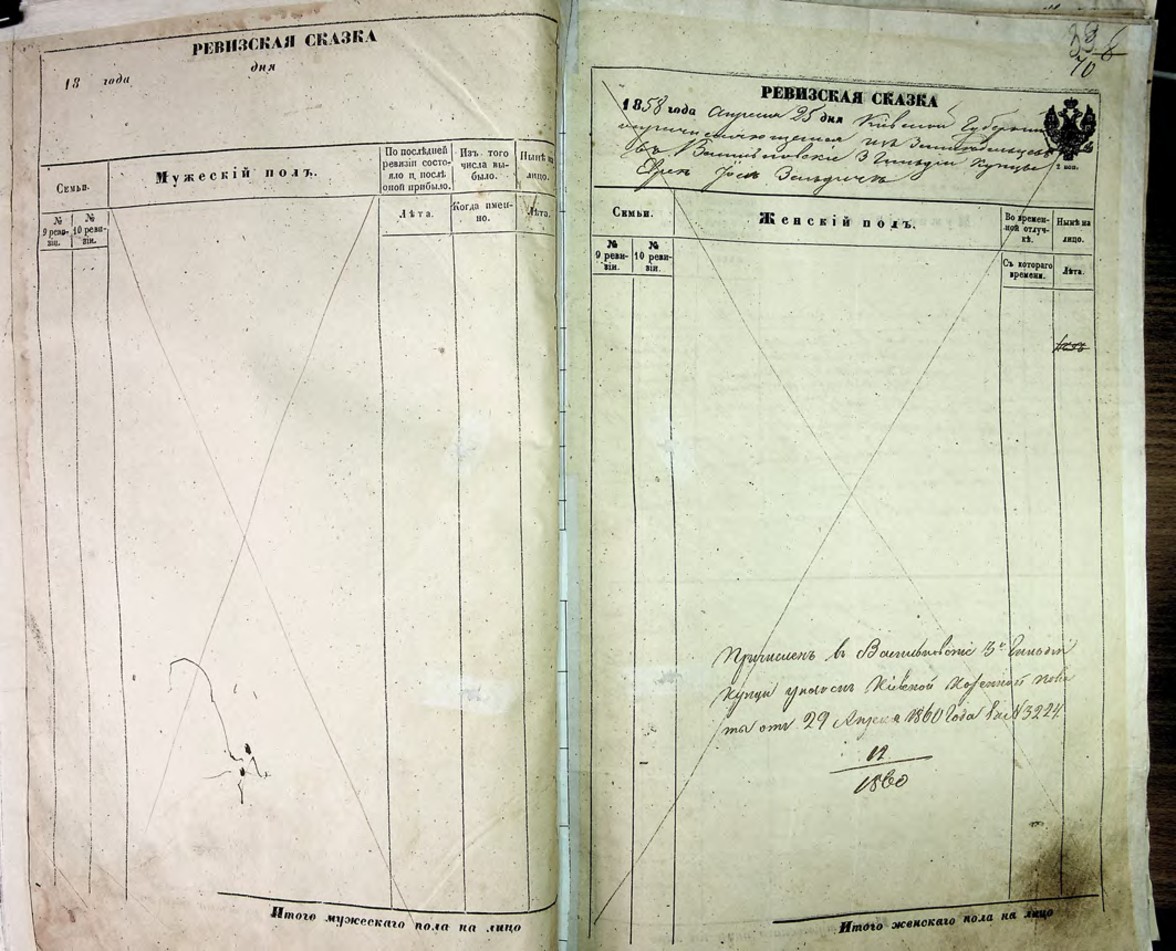 РЕВИЗСКАЯ СКАЗКА
18 года
дня
Семьи.
Мужескій полъ.
По послѣдней ревизіи состояло и послѣ оной прибыло.
Изъ того числа выбыло.
Нынѣ на лицо.
№ 9 ревизіи.
№ 10 ревизіи.
Лѣта.
Когда именно.
Лѣта.
Итого мужескаго пола на лицо
70
РЕВИЗСКАЯ СКАЗКА
1858 года Апреля 25 дня Кіевской Губерніи
3 Гильдіи Купцы
Еврея
Семьи.
Женскій полъ.
Во временной отлучкѣ.
Нынѣ на лицо.
№ 9 ревизіи.
№ 10 ревизіи.
Съ котораго времени.
Лѣта.
Причисленъ в Васильковскіе 3й Гильдіи
Купцы указомъ Кіевской Казенной Пала
ты отъ 29 Апреля 1860 Года за № 3224
12
1860
Итого женскаго пола на лицо